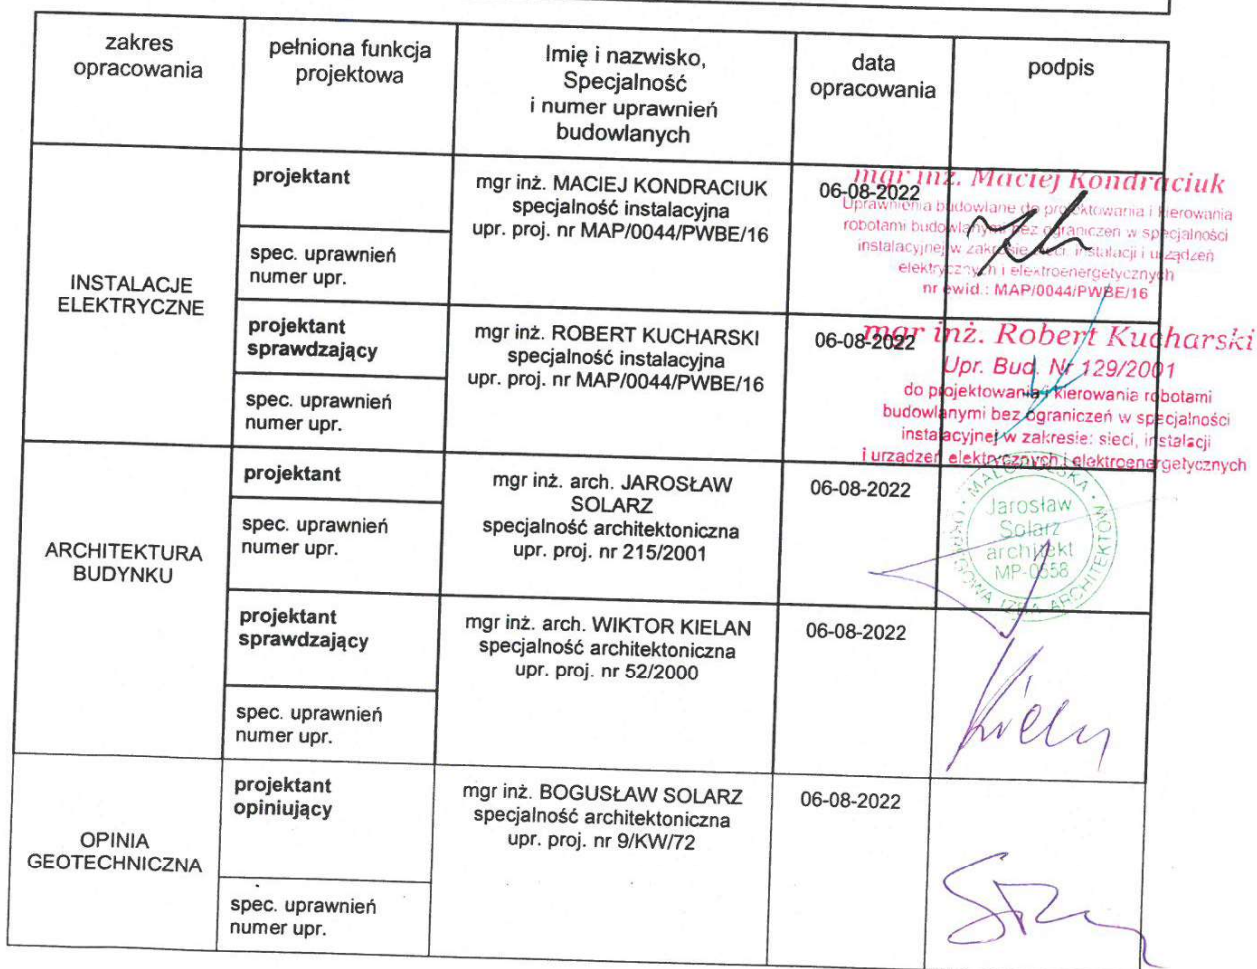 zakres
opracowania
pełniona funkcja
projektowa
Imię i nazwisko,
Specjalność
i numer uprawnień
budowlanych
data
opracowania
podpis
INSTALACJE
ELEKTRYCZNE
projektant
spec. uprawnień
numer upr.
mgr inż. MACIEJ KONDRACIUK
specjalność instalacyjna
upr. proj. nr MAP/0044/PWBE/16
06-08-2022
mgr inż. Maciej Kondraciuk
Uprawnienia budowlane do projektowania i kierowania
robotami budowlanymi bez ograniczeń w specjalności
instalacyjnej w zakresie sieci, instalacji i urządzeń
elektrycznych i elektroenergetycznych
nr ewid.: MAP/0044/PWBE/16
projektant
sprawdzający
spec. uprawnień
numer upr.
mgr inż. ROBERT KUCHARSKI
specjalność instalacyjna
upr. proj. nr MAP/0044/PWBE/16
06-08-2022
mgr inż. Robert Kucharski
Upr. Bud. Nr 129/2001
do projektowania i kierowania robotami
budowlanymi bez ograniczeń w specjalności
instalacyjnej w zakresie: sieci, instalacji
i urządzeń elektrycznych i elektroenergetycznych
ARCHITEKTURA
BUDYNKU
projektant
spec. uprawnień
numer upr.
mgr inż. arch. JAROSŁAW
SOLARZ
specjalność architektoniczna
upr. proj. nr 215/2001
06-08-2022
MAŁOPOLSKA OKRĘGOWA IZBA ARCHITEKTÓW
Jarosław
Solarz
architekt
MP-0558
projektant
sprawdzający
spec. uprawnień
numer upr.
mgr inż. arch. WIKTOR KIELAN
specjalność architektoniczna
upr. proj. nr 52/2000
06-08-2022
Kielan
OPINIA
GEOTECHNICZNA
projektant
opiniujący
spec. uprawnień
numer upr.
mgr inż. BOGUSŁAW SOLARZ
specjalność architektoniczna
upr. proj. nr 9/KW/72
06-08-2022